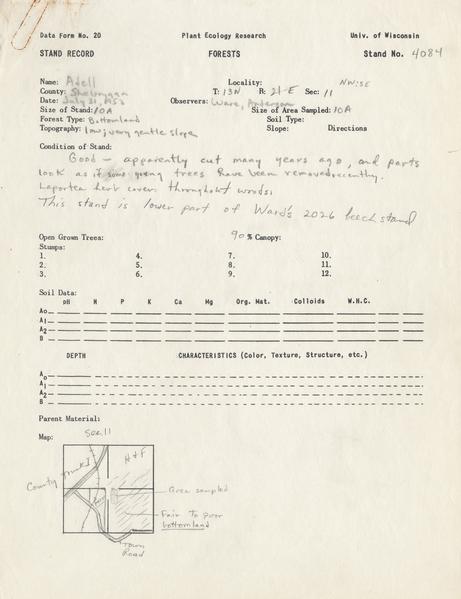 Data Form No. 20 Plant Ecology Research Univ. of Wisconsin
STAND RECORD FORESTS Stand No. 4084
Name: Adell Locality: NW:SE
County: Sheboygan T: 13N R: 21E Sec: 11
Date: July 31, 1953 Observers: Ware, Anderson
Size of Stand: 10A Size of Area Sampled: 10A
Forest Type: Bottomland Soil Type:
Topography: low, very gentle slope Slope: Directions
Condition of Stand:
Good - apparently cut many years ago, and parts
look as if some young trees have been removed recently.
Laportea herb cover throughout woods.
This stand is lower part of Ward's 2026 beech stand
Open Grown Trees: 90% Canopy:
Stumps:
1. 4. 7. 10.
2. 5. 8. 11.
3. 6. 9. 12.
Soil Data:
pH N P K Ca Mg Org. Mat. Colloids W.H.C.
Ao
A1
A2
B
DEPTH CHARACTERISTICS (Color, Texture, Structure, etc.)
Ao
A1
A2
B
Parent Material:
Map: Sec. 11
County Trunk I
H & F
Area sampled
Fair to poor
bottomland
Town
Road